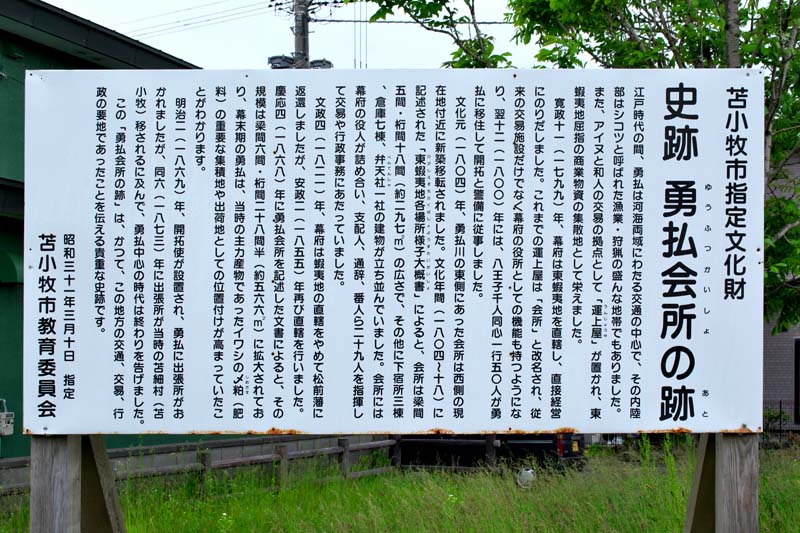 苫小牧市指定文化財
史跡 勇払会所の跡
ゆうふつかいしょ あと
江戸時代の間、勇払は河海両域にわたる交通の中心で、その内陸
部はシコツと呼ばれた漁業・狩猟の盛んな地帯でもありました。
また、アイヌと和人の交易の拠点として「運上屋」が置かれ、東
うんじょうや
蝦夷地屈指の商業物資の集散地として栄えました。
寛政十一(一七九九)年、幕府は東蝦夷地を直轄し、直接経営
にのりだしました。これまでの運上屋は「会所」と改名され、従
来の交易施設だけでなく幕府の役所としての機能も持つようにな
り、翌十二(一八〇〇)年には、八王子千人同心一行五〇人が勇
払に移住して開拓と警備に従事しました。
文化元(一八〇四)年、勇払川の東側にあった会所は西側の現
在地付近に新築移転されました。文化年間(一八〇四〜十八)に
記述された「東蝦夷地各場所様子大概書」によると、会所は梁間
五間・桁間十八間(約二九七㎡)の広さで、その他に下宿所三棟
、倉庫七棟、弁天社一社の建物が立ち並んでいました。会所には
幕府の役人が詰め合い、支配人、通辞、番人ら二十九人を指揮し
て交易や行政事務にあたっていました。
文政四(一八二一)年、幕府は蝦夷地の直轄をやめて松前藩に
返還しましたが、安政二(一八五五)年再び直轄を行いました。
慶応四(一八六八)年に勇払会所を記述した文書によると、その
規模は梁間六間・桁間二十八間半(約五六六㎡)に拡大されてお
り、幕末期の勇払は、当時の主力産物であったイワシの〆粕(肥
しめかす
料)の重要な集積地や出荷地としての位置付けが高まっていたこ
とがわかります。
明治二(一八六九)年、開拓使が設置され、勇払に出張所がお
かれましたが、同六(一八七三)年に出張所が当時の苫細村(苫
小牧)移されるに及んで、勇払中心の時代は終わりを告げました。
この「勇払会所の跡」は、かつて、この地方の交通、交易、行
政の要地であったことを伝える貴重な史跡です。
昭和三十一年三月十日 指定
苫小牧市教育委員会